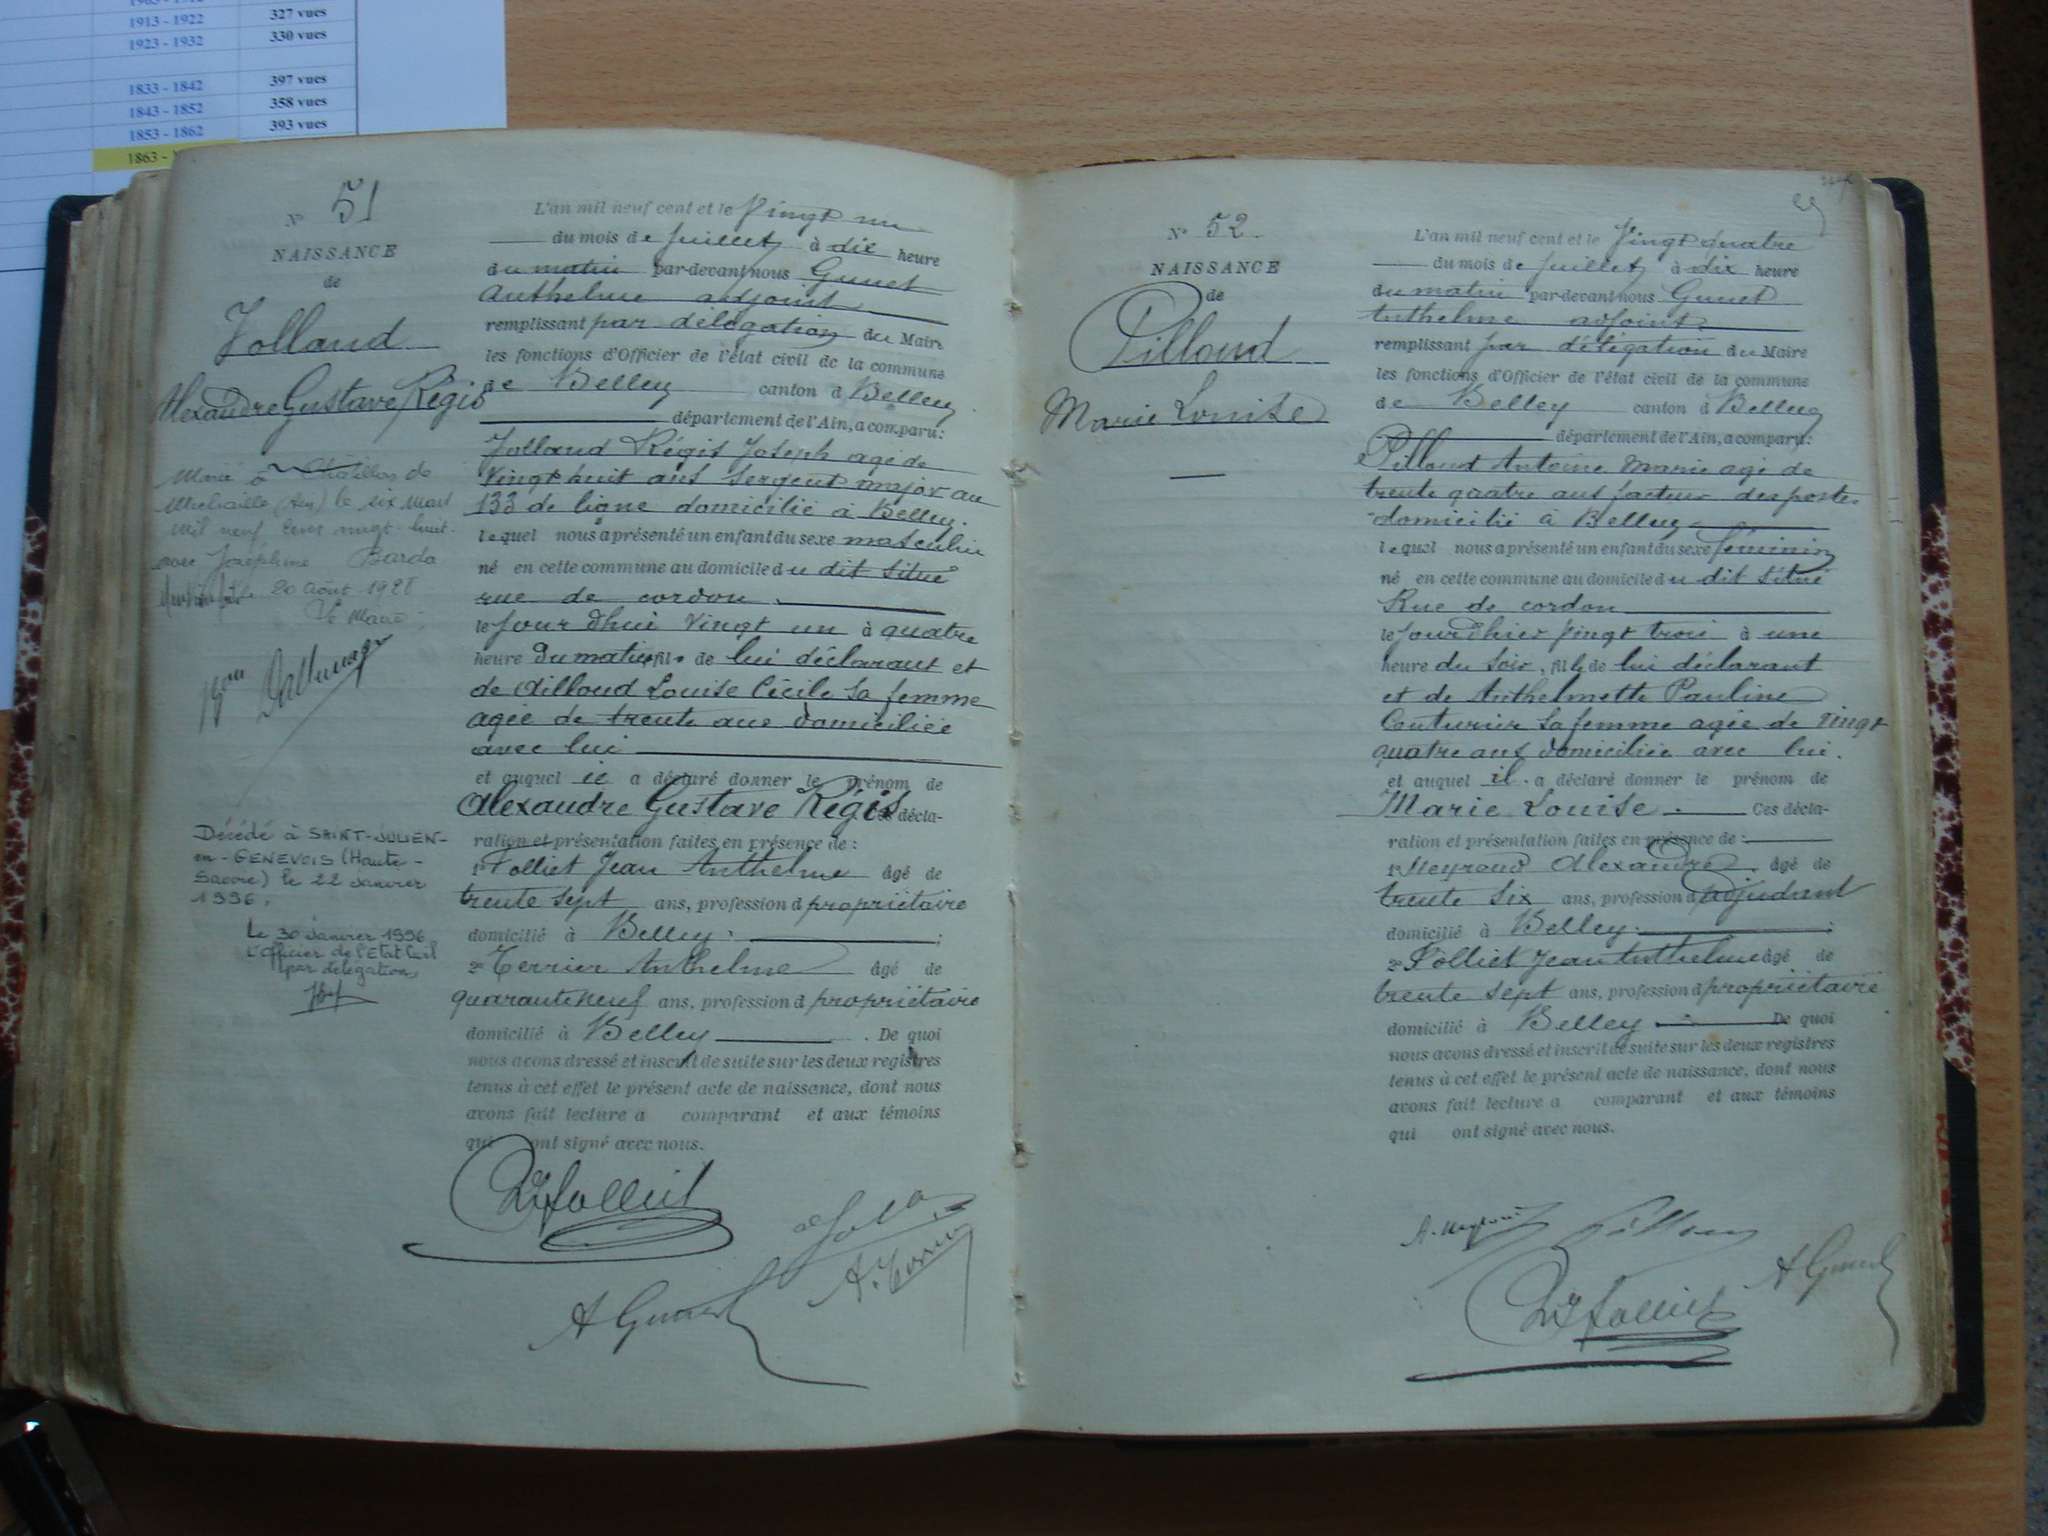 1913 - 1922 327 vues
1923 - 1932 330 vues
1833 - 1842 397 vues
1843 - 1852 358 vues
1853 - 1862 393 vues
1863 -
N° 51
NAISSANCE
de
Jolland
Alexandre Gustave Régis
Marié à Châtillon de
Michaille (Ain) le six Mars
mil neuf cent vingt-huit
avec Joséphine Barda
le 20 Août 1928
Le Maire
Décédé à SAINT-JULIEN-
en-GENEVOIS (Haute-
Savoie) le 22 Janvier
1996.
Le 30 Janvier 1996
L'Officier de l'Etat Civil
par délégation,
L'an mil neuf cent et le Vingt un
du mois de Juillet, à dix heure
du matin par-devant nous Gunet
Anthelme adjoint
remplissant par délégation du Maire
les fonctions d'Officier de l'état civil de la commune
de Belley canton d Belley
département de l'Ain, a comparu:
Jolland Régis Joseph agé de
Vingt huit ans Sergent major au
133 de ligne domicilié à Belley.
lequel nous a présenté un enfant du sexe masculin
né en cette commune au domicile du dit situé
rue de cordon
le Jour d'hui Vingt un à quatre
heure Du matin, fils de lui déclarant et
de Dilloud Louise Cécile Sa femme
agée de trente ans domiciliée
avec lui
et auquel il a déclaré donner le prénom de
Alexandre Gustave Régis Ces décla-
ration et présentation faites en présence de :
1° Folliet Jean Anthelme âgé de
trente sept ans, profession d propriétaire
domicilié à Belley ;
2° Terrier Anthelme âgé de
quarante neuf ans, profession d propriétaire
domicilié à Belley . De quoi
nous avons dressé et inscrit de suite sur les deux registres
tenus à cet effet le présent acte de naissance, dont nous
avons fait lecture a comparant et aux témoins
qui ont signé avec nous.
Folliet
A. Terrier
A Gunet
N° 52
NAISSANCE
de
Pilloud
Marie Louise
L'an mil neuf cent et le Vingt quatre
du mois de Juillet, à dix heure
du matin par-devant nous Gunet
Anthelme adjoint
remplissant par délégation du Maire
les fonctions d'Officier de l'état civil de la commune
de Belley canton d Belley
département de l'Ain, a comparu:
Pilloud Antoine Marie agé de
trente quatre ans facteur des postes
domicilié à Belley
lequel nous a présenté un enfant du sexe féminin
né en cette commune au domicile du dit situé
Rue de cordon
le Jour d'hier Vingt trois à une
heure du soir, fille de lui déclarant
et de Anthelmette Pauline
Couturier Sa femme agée de Vingt
quatre ans domiciliée avec lui.
et auquel il a déclaré donner le prénom de
Marie Louise. Ces décla-
ration et présentation faites en présence de :
1° Neyroud Alexandre âgé de
trente Six ans, profession d adjudant
domicilié à Belley ;
2° Folliet Jean Anthelme âgé de
trente sept ans, profession d propriétaire
domicilié à Belley De quoi
nous avons dressé et inscrit de suite sur les deux registres
tenus à cet effet le présent acte de naissance, dont nous
avons fait lecture a comparant et aux témoins
qui ont signé avec nous.
Pilloud
A Gunet
Folliet